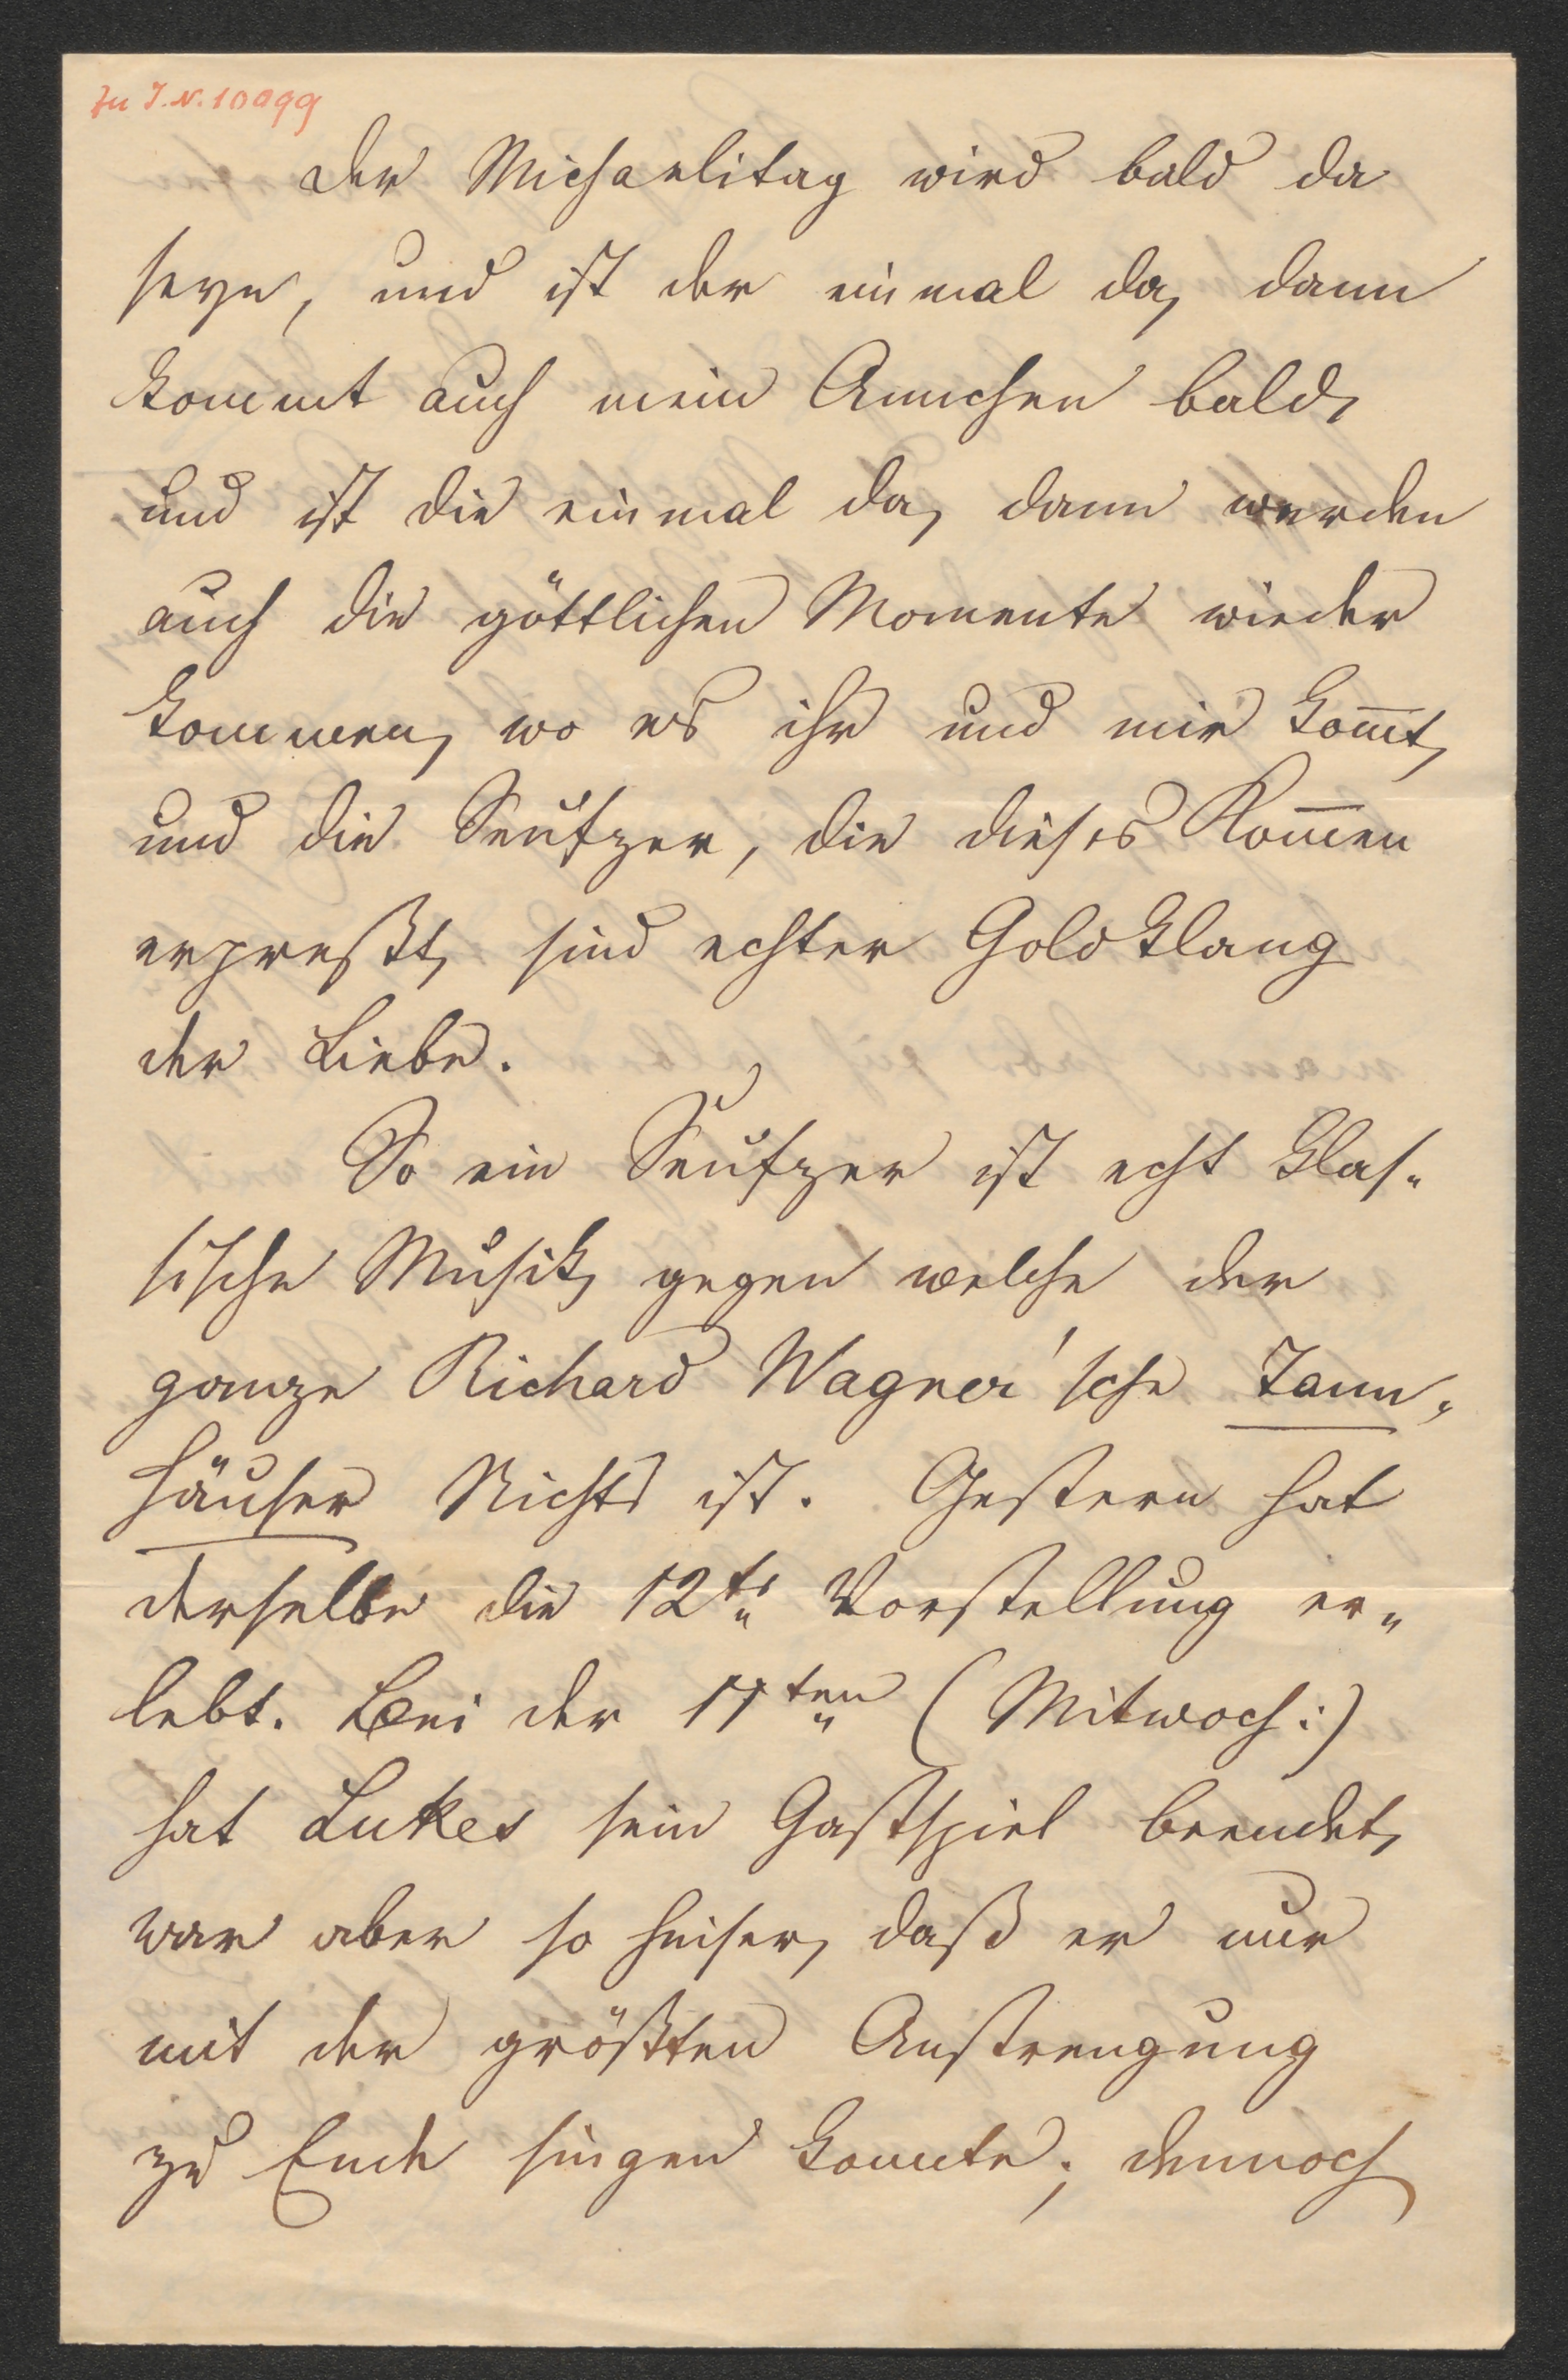 Zu I.N. 10099
Der Michaelitag wird bald da
seyn, und ist der einmal da, dann
kommt auch mein Annchen bald,
und ist die einmal da, dann werden
auch die göttlichen Momente wieder
kommen, wo es ihr und mir kom̅t,
und die Seufzer, die dieses Kom̅en
erpreßt, sind echter Goldklang
der Liebe.
So ein Seufzer ist echt klas-
sische Musik, gegen welche der
ganze Richard Wagner'sche Tann-
häuser Nichts ist. Gestern hat
derselbe die 12te Vorstellung er-
lebt. Bei der 11ten (Mitwoch:)
hat Lukes sein Gastspiel beendet,
war aber so heiser, daß er nur
mit der größten Anstrengung
zu Ende singen konnte; dennoch